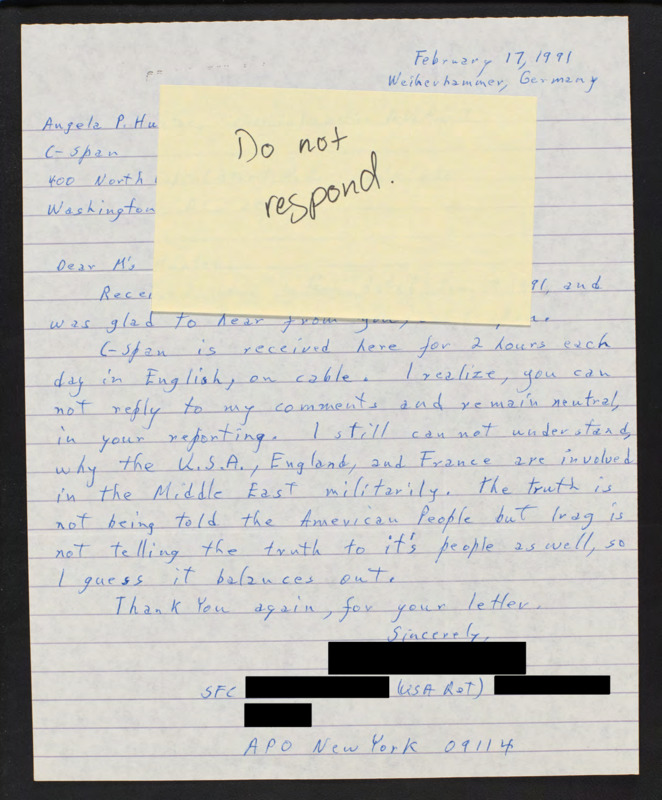 February 17, 1991
Weiherhammer, Germany
Angela P. Hu
C-Span
400 North
Washington
Do not
respond.
Dear M's
Rece 91, and
was glad to hear from you,
C-Span is received here for 2 hours each
day in English, on cable. I realize, you can
not reply to my comments and remain neutral,
in your reporting. I still can not understand,
why the U.S.A., England, and France are involved
in the Middle East militarily. The truth is
not being told the American People but Iraq is
not telling the truth to it's people as well, so
I guess it balances out.
Thank You again, for your letter.
Sincerely,
SFC (USA Ret)
APO New York 09114